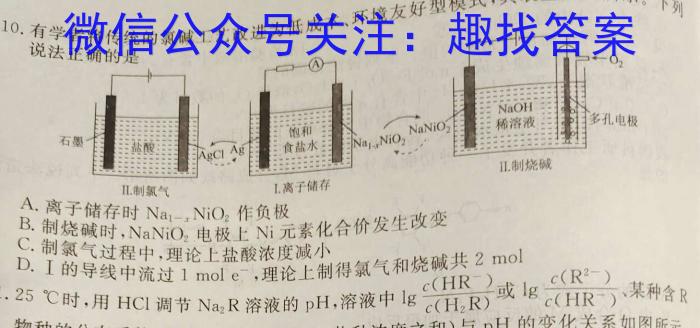 下列
10. 有学者
微信公众号关注：趣找答案
说法正确的是
A
O₂
石墨
盐酸
AgCl
Ag
饱和
食盐水
Na₁₋ₓNiO₂
NaNiO₂
NaOH
稀溶液
多孔电极
II.制氯气
I.离子储存
II.制烧碱
A. 离子储存时 Na₁₋ₓNiO₂ 作负极
B. 制烧碱时,NaNiO₂ 电极上 Ni 元素化合价发生改变
C. 制氯气过程中,理论上盐酸浓度减小
D. I 的导线中流过 1 mol e⁻,理论上制得氯气和烧碱共 2 mol
. 25 ℃时,用 HCl 调节 Na₂R 溶液的 pH,溶液中 lg c(HR⁻)/c(H₂R) 或 lg c(R²⁻)/c(HR⁻)、某种含 R